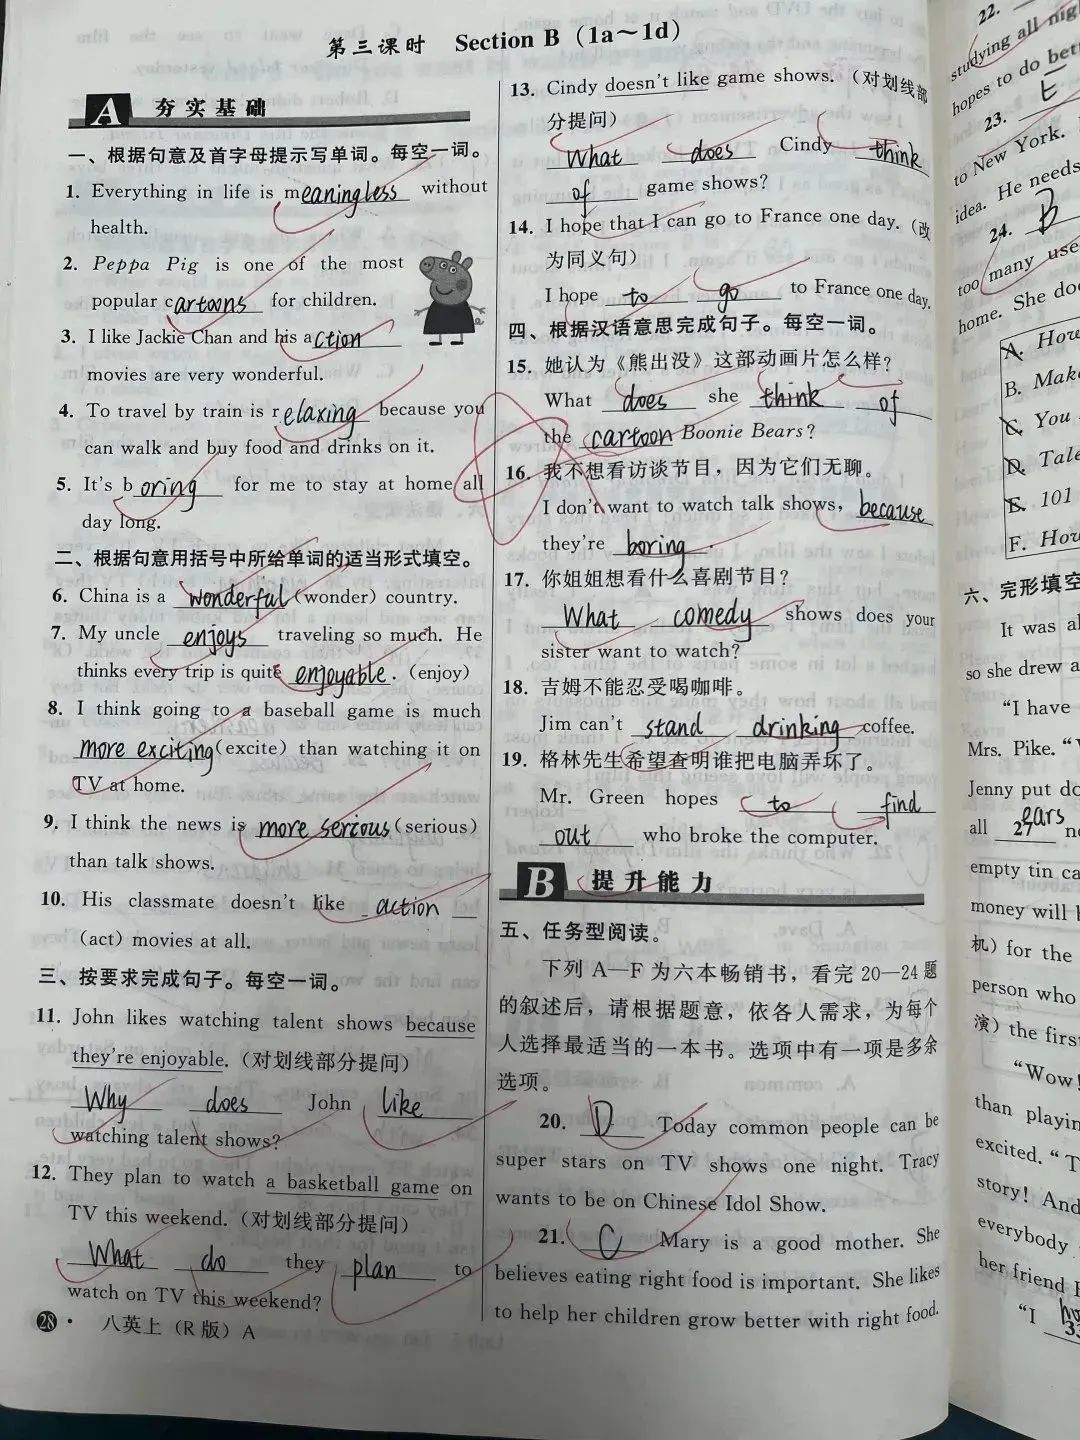 第三课时 Section B (1a～1d)
A 夯实基础
一、根据句意及首字母提示写单词。每空一词。
1. Everything in life is meaningless without
health.
2. Peppa Pig is one of the most
popular cartoons for children.
3. I like Jackie Chan and his action
movies are very wonderful.
4. To travel by train is relaxing because you
can walk and buy food and drinks on it.
5. It's boring for me to stay at home all
day long.
二、根据句意用括号中所给单词的适当形式填空。
6. China is a wonderful (wonder) country.
7. My uncle enjoys traveling so much. He
thinks every trip is quite enjoyable. (enjoy)
8. I think going to a baseball game is much
more exciting (excite) than watching it on
TV at home.
9. I think the news is more serious (serious)
than talk shows.
10. His classmate doesn't like action
(act) movies at all.
三、按要求完成句子。每空一词。
11. John likes watching talent shows because
they're enjoyable. (对划线部分提问)
Why does John like
watching talent shows?
12. They plan to watch a basketball game on
TV this weekend. (对划线部分提问)
What do they plan to
watch on TV this weekend?
28 · 八英上（R 版）A
13. Cindy doesn't like game shows. (对划线部
分提问)
What does Cindy think
of game shows?
14. I hope that I can go to France one day. (改
为同义句)
I hope to go to France one day.
四、根据汉语意思完成句子。每空一词。
15. 她认为《熊出没》这部动画片怎么样?
What does she think of
the cartoon Boonie Bears?
16. 我不想看访谈节目，因为它们无聊。
I don't want to watch talk shows, because
they're boring.
17. 你姐姐想看什么喜剧节目?
What comedy shows does your
sister want to watch?
18. 吉姆不能忍受喝咖啡。
Jim can't stand drinking coffee.
19. 格林先生希望查明谁把电脑弄坏了。
Mr. Green hopes to find
out who broke the computer.
B 提升能力
五、任务型阅读。
下列 A—F 为六本畅销书，看完 20—24 题
的叙述后，请根据题意，依各人需求，为每个
人选择最适当的一本书。选项中有一项是多余
选项。
20. D Today common people can be
super stars on TV shows one night. Tracy
wants to be on Chinese Idol Show.
21. C Mary is a good mother. She
believes eating right food is important. She likes
to help her children grow better with right food.
22.
studying all nigh
hopes to do bett
23. E
to New York.
idea. He needs
24. B
too many use
home. She do
A. How
B. Make
C. You
D. Tale
E. 101
F. How
六、完形填空
It was a
so she drew a
"I have
Mrs. Pike. "
Jenny put do
all 27 ears no
empty tin ca
money will
机) for the
person who
演) the first
"Wow!
than playin
excited. "T
story! And
everybody
her friend
"I 33